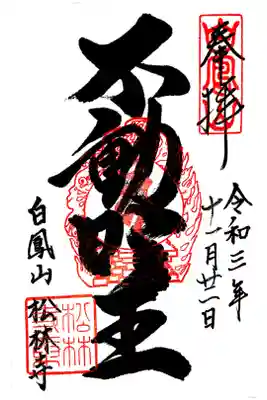 奉拝
令和三年
十一月廿一日
不動明王
白鳳山 松林寺